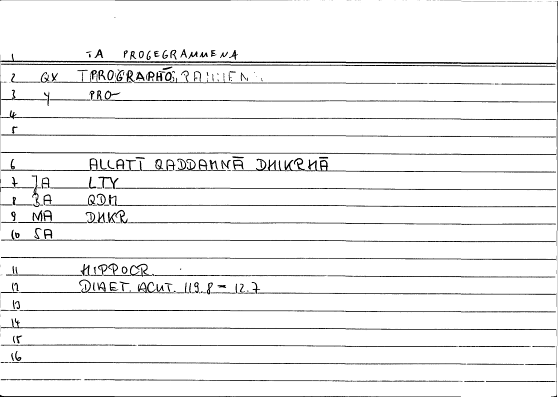 1 TA PROGEGRAMMENA
2 QX TPROGRAPHŌ,
3 Y PRO-
4
5
6 ALLATĪ QADDAMNĀ DHIKRHĀ
7 JA LTY
8 BA QDM
9 MA DHKR
10 SA
11 HIPPOCR.
12 DIAET. ACUT. 119.8 = 12.7
13
14
15
16